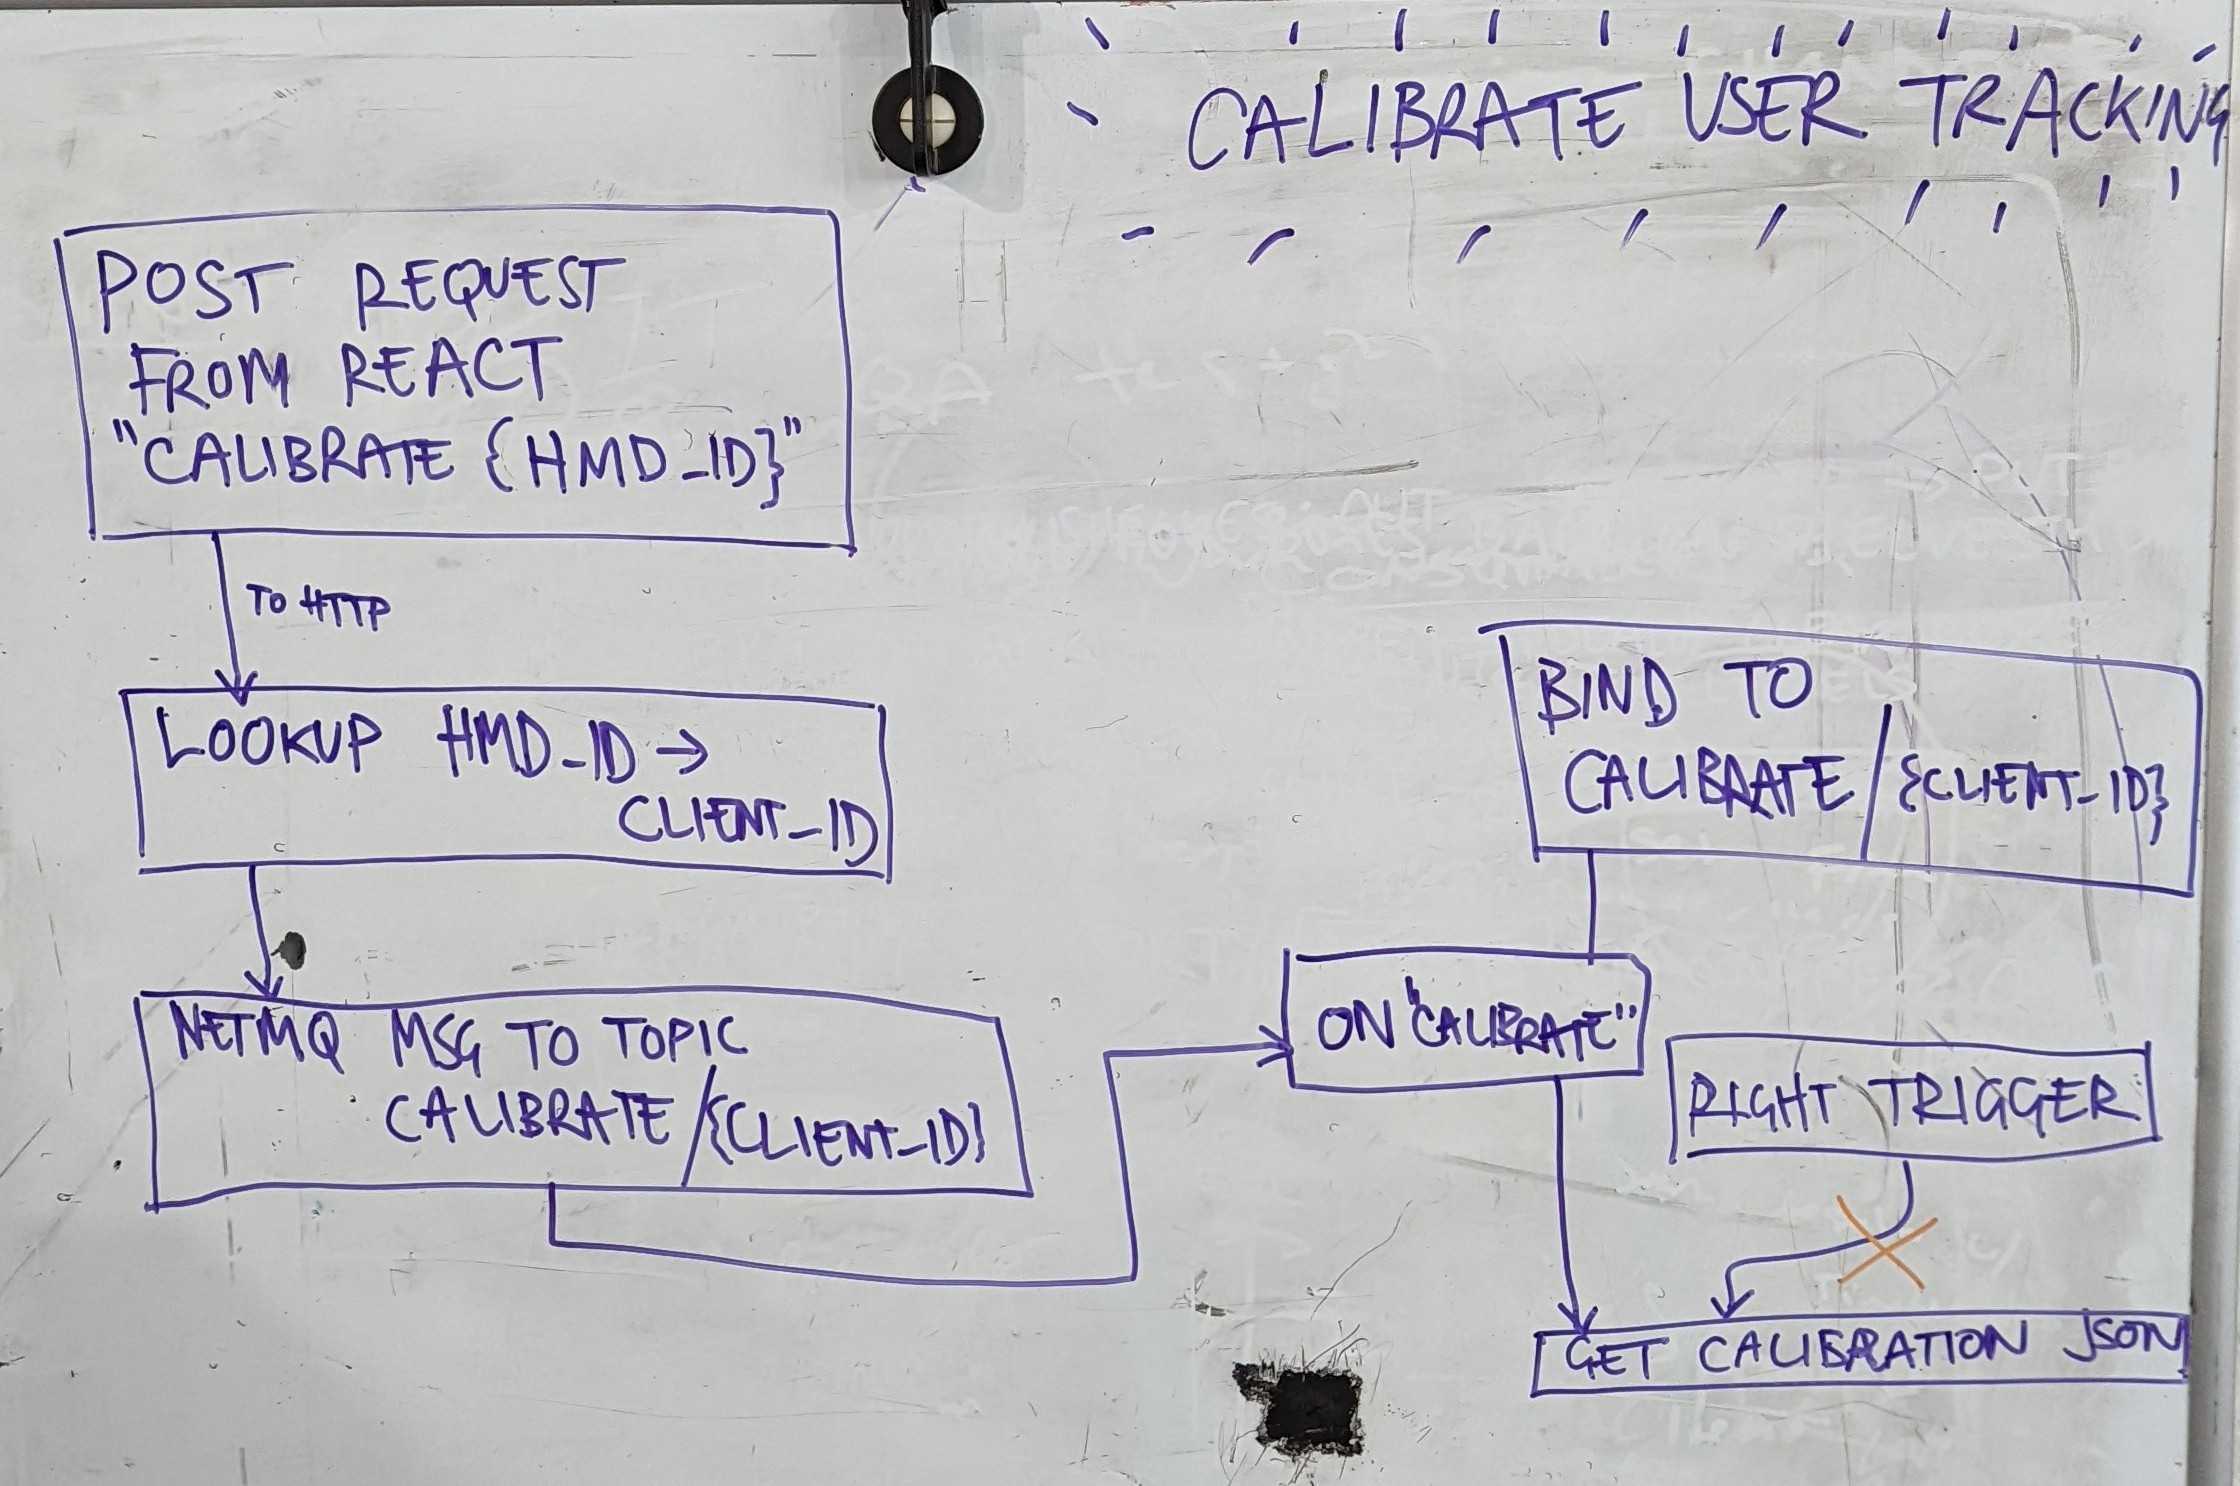 CALIBRATE USER TRACKING
POST REQUEST
FROM REACT
"CALIBRATE {HMD_ID}"
TO HTTP
LOOKUP HMD_ID →
CLIENT_ID
NETMQ MSG TO TOPIC
CALIBRATE/{CLIENT_ID}
BIND TO
CALIBRATE/{CLIENT_ID}
ON "CALIBRATE"
RIGHT TRIGGER
GET CALIBRATION JSON